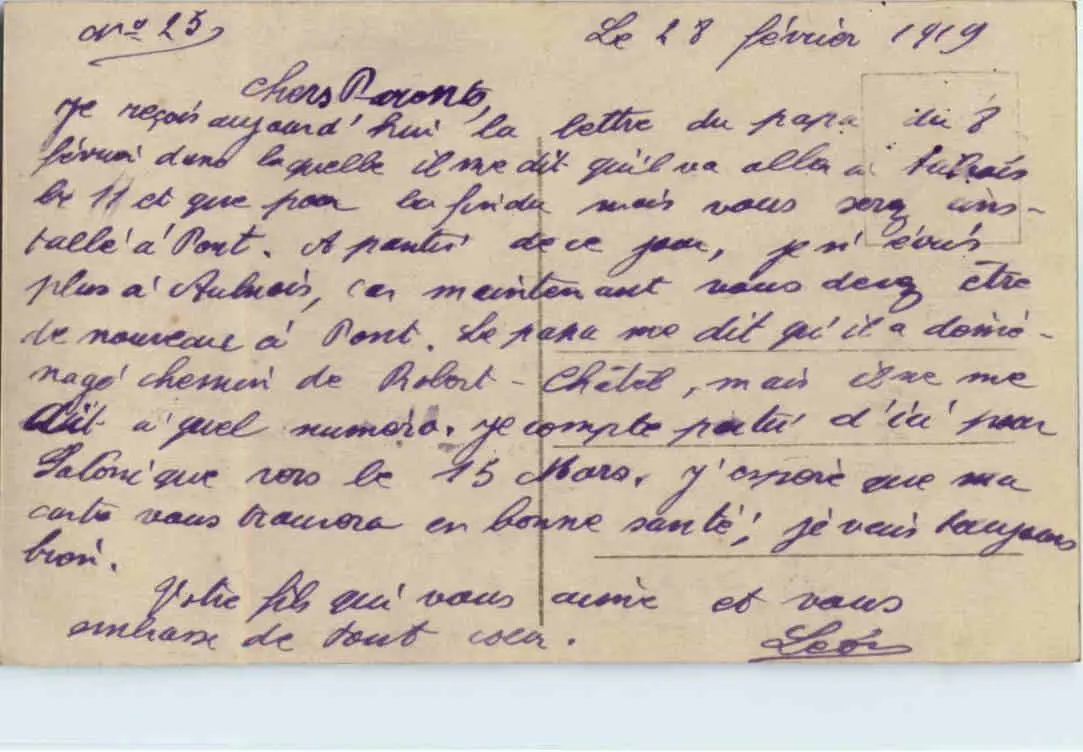 No 25
Le 28 février 1919
Chers Parents,
Je reçois aujourd'hui la lettre du papa du 8
février dans laquelle il me dit qu'il va aller à Aulnois
le 11 et que pour la fin du mois vous serez ins-
tallé à Pont. A partir de ce jour, je n'écris
plus à Aulnois, car maintenant vous devez être
de nouveau à Pont. Le papa me dit qu'il a démé-
nagé chemin de Robert-Châtel, mais il ne me
dit à quel numéro. Je compte partir d'ici pour
Salonique vers le 15 Mars. J'espère que ma
carte vous trouvera en bonne santé; je vais toujours
bien.
Votre fils qui vous aime et vous
embrasse de tout coeur.
Léon